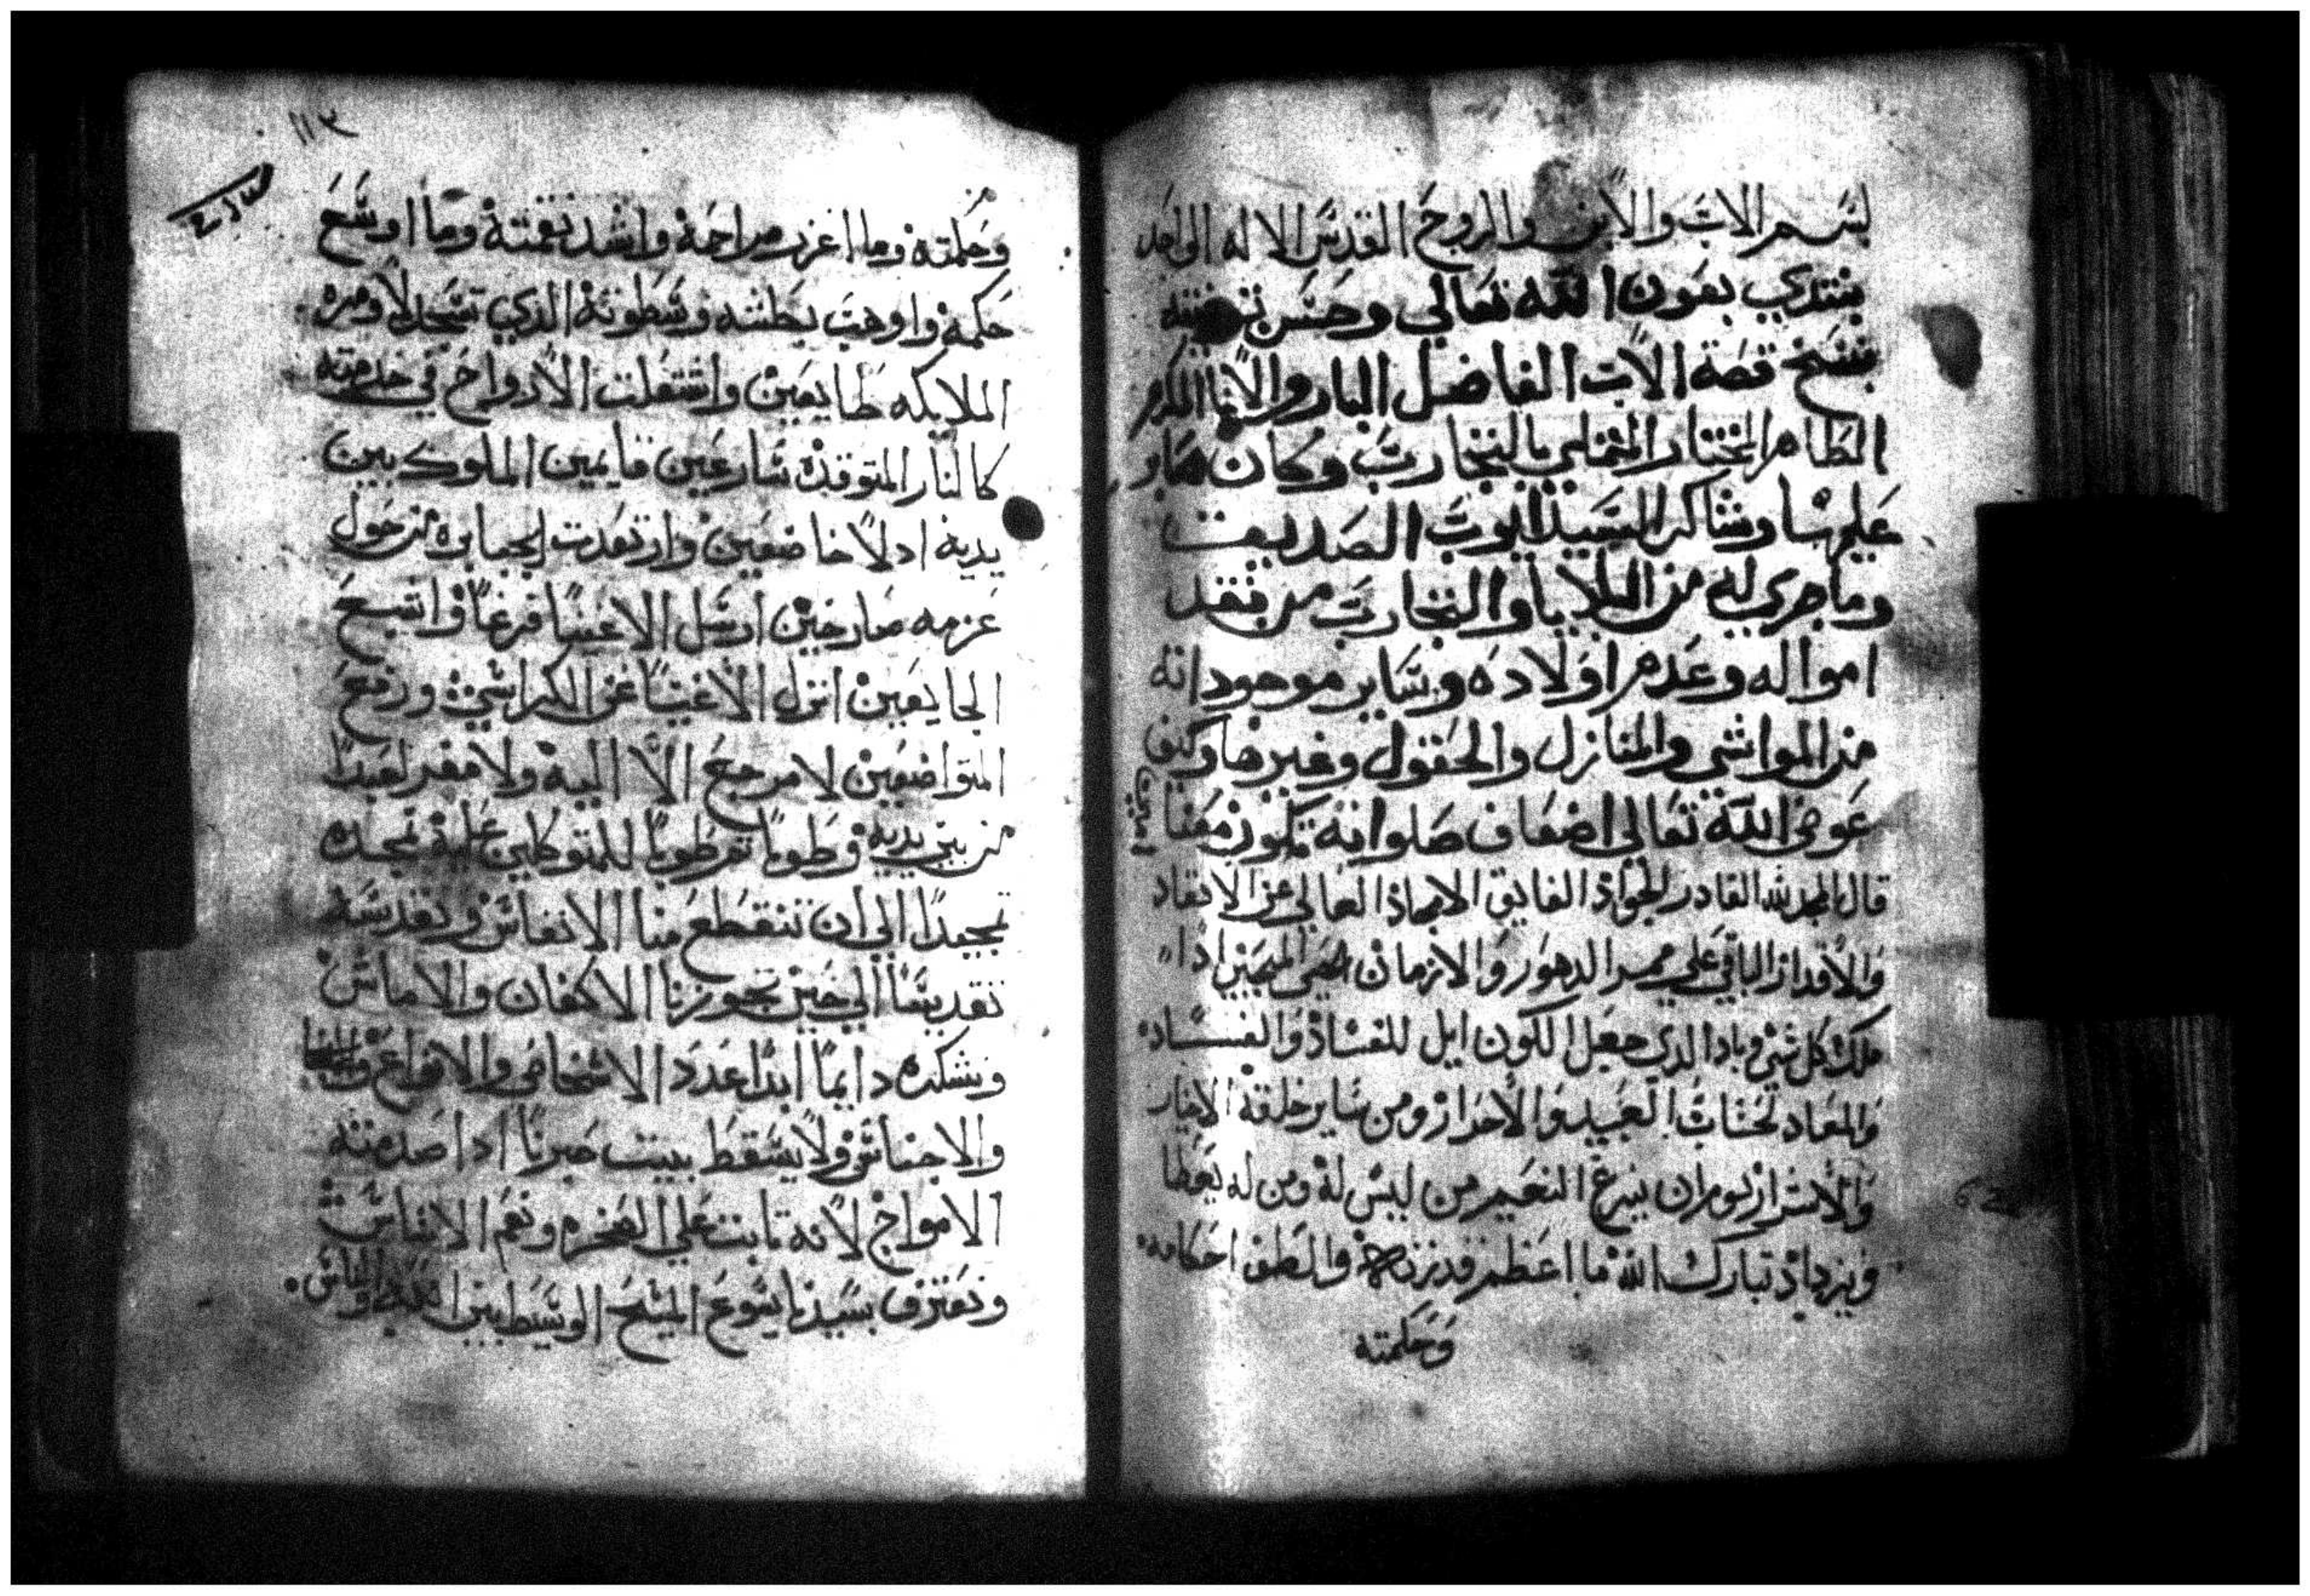 بسم الاب والابن والروح القدس الاله الواحد
نبتدي بعون الله تعالي وحسن توفيقه
بنسخ قصة الاب الفاضل البار والاغا المكرم
الطاهر المختار الممتلي بالتجارب وكان صابر
عليها وشاكر السيد ايوب الصديق
وما جري له من البلايا والتجارب من فقد
امواله وعدم اولاده وساير موجوداته
من المواشي والمنازل والحقول وغير ذاك وكيف
عوض الله تعالي اضعاف صلواته تكون معنا
امين
قال المجد لله القادر الجواد الفايق الامجاد العالي عن الانقاد
والاقدار الباقي علي ممر الدهور والازمان اذا
ملك كل شي وباد الذي جعل الكون ايل للفساد والفساد
والمعاد لحساب العبيد والاحرار ومن ساير خلقه الاخيار
والاشرار ينزع النعيم من ليس له ومن له يعطا
ويزداد تبارك الله ما اعظم قدرته والطف احكامه
وحكمته
١١٣
وحكمته وما اغزر مراحمه واشد نقمته وما اوسع
حكمه واوهب بطشه وسطوته الذي تسجد لاومره
الملايكه طايعين واشتعلت الارواح في خدمته
كالنار المتوقده سارعين قايمين الملوك بين
يديه ادلاً خاضعين وارتعدت الجبابره من حول
عزمه صارخين ارسل الاغنيا فرغاً واشبع
الجايعين انزل الاغنيا عن الكراسي ورفع
المتواضعين لا مرجع الا اليه ولا مفر لعبداً
من بين يديه وطوبا ثم طوبا للمتوكلين عليه نمجده
تمجيداً الي ان تنقطع منا الانفاس ونقدسه
تقديساً الي حين تحوزنا الاكفان والارماس
ونشكره دايماً ابداً عدد الاشخاص والانواع
والاجناس ولا يسقط بيت صبرنا اذا صدمته
الامواج لانه ثابت علي الصخره ونعم الاساس
ونعترف بسيدنا يسوع المسيح الوسيط بين الله والناس